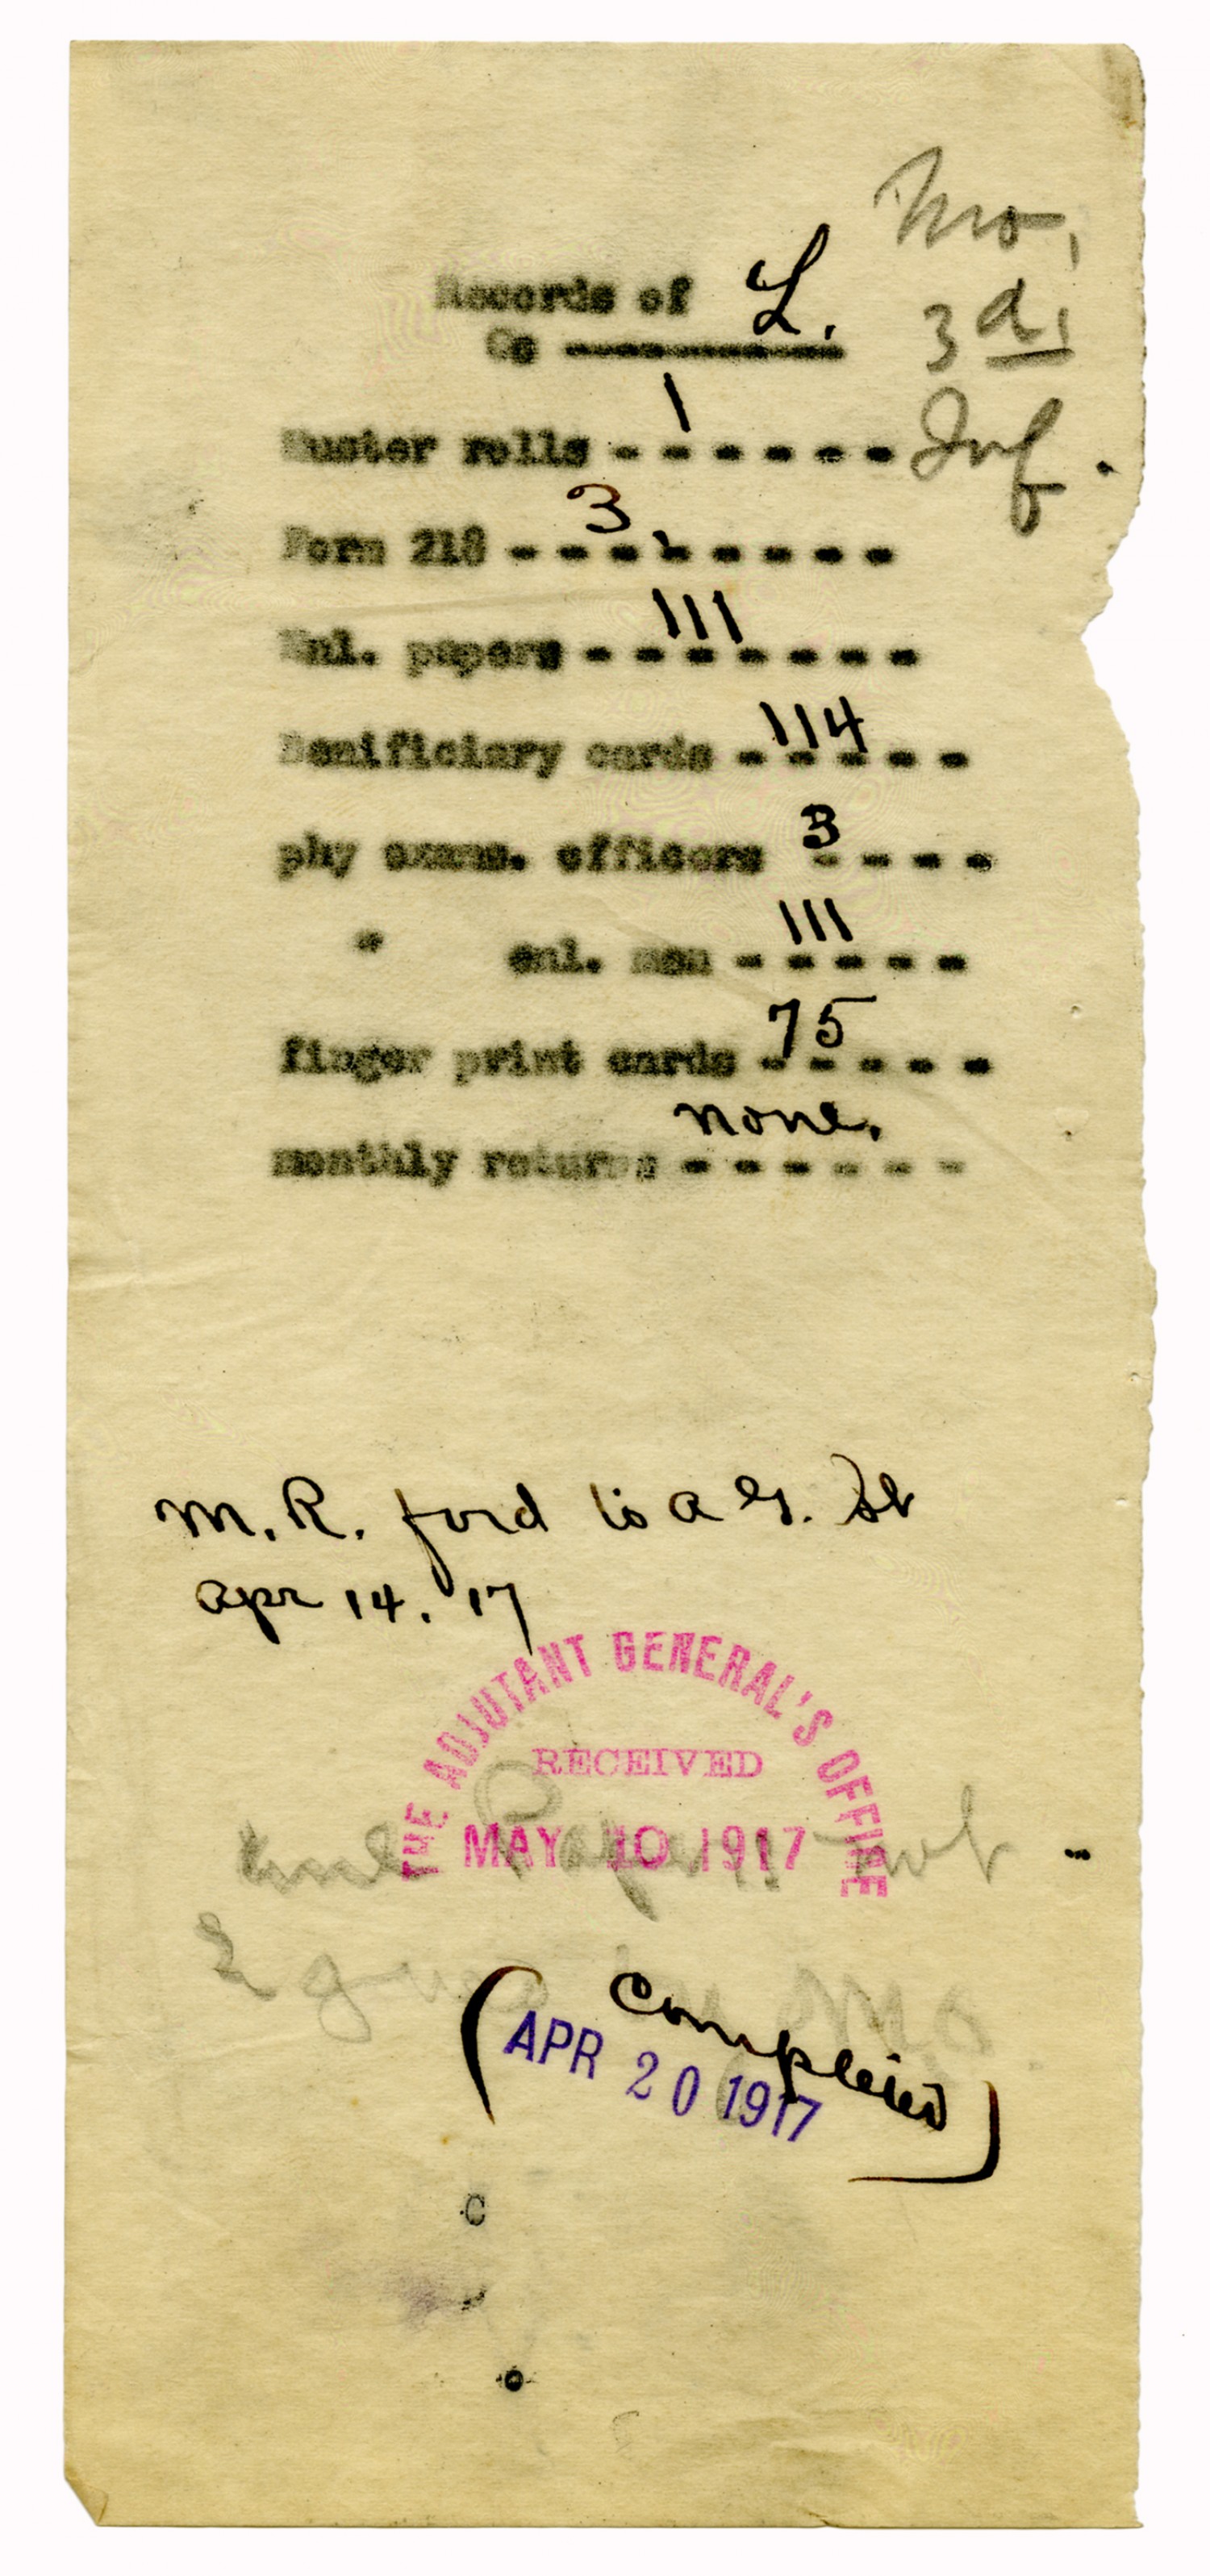 Mo.
3d.
Inf.
Records of
Co ---------- L.
Muster rolls - 1 - - - - -
Form 218 - - 3. - - - - - -
Enl. papers - - 111 - - - - -
Benificiary cards - 114 - - - -
phy exams. officers 3 - - - -
" enl. men - 111 - - - -
finger print cards - 75 - - - -
monthly returns - none. - - - - -
M.R. ford to A G.
apr 14. '17
THE ADJUTANT GENERAL'S OFFICE
RECEIVED
MAY 10 1917
not
Mo.
(Completed)
APR 20 1917